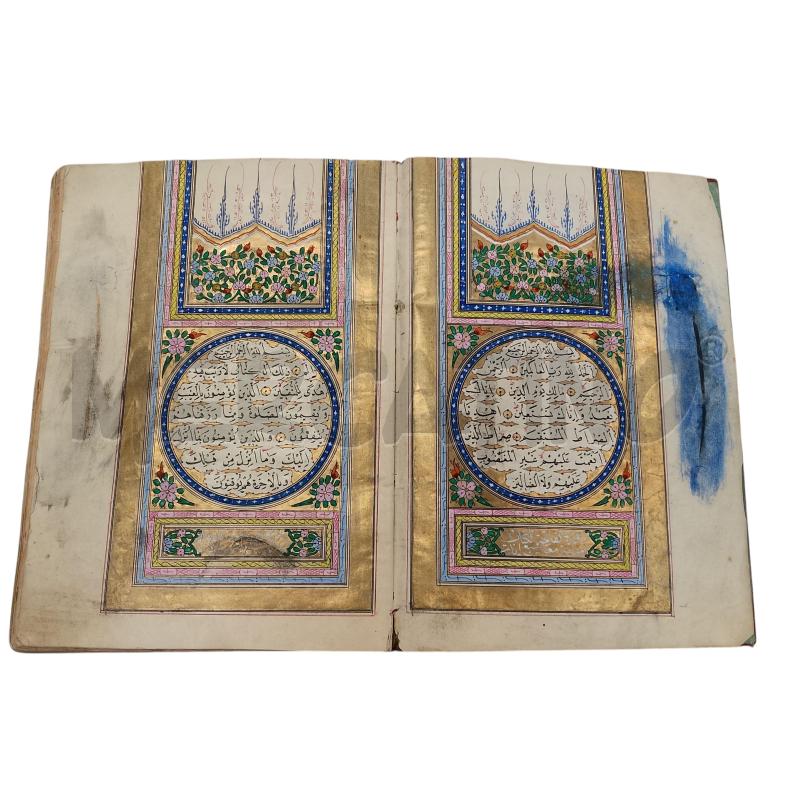 بسم الله الرحمن الرحيم
الحمد لله رب العالمين الرحمن
الرحيم مالك يوم الدين اياك
نعبد واياك نستعين اهدنا
الصراط المستقيم صراط الذين
انعمت عليهم غير المغضوب
عليهم ولا الضالين
بسم الله الرحمن الرحيم
الم ذلك الكتاب لا ريب فيه
هدى للمتقين الذين يؤمنون بالغيب
ويقيمون الصلوة ومما رزقناهم
ينفقون والذين يؤمنون بما انزل
اليك وما انزل من قبلك
وبالاخرة هم يوقنون